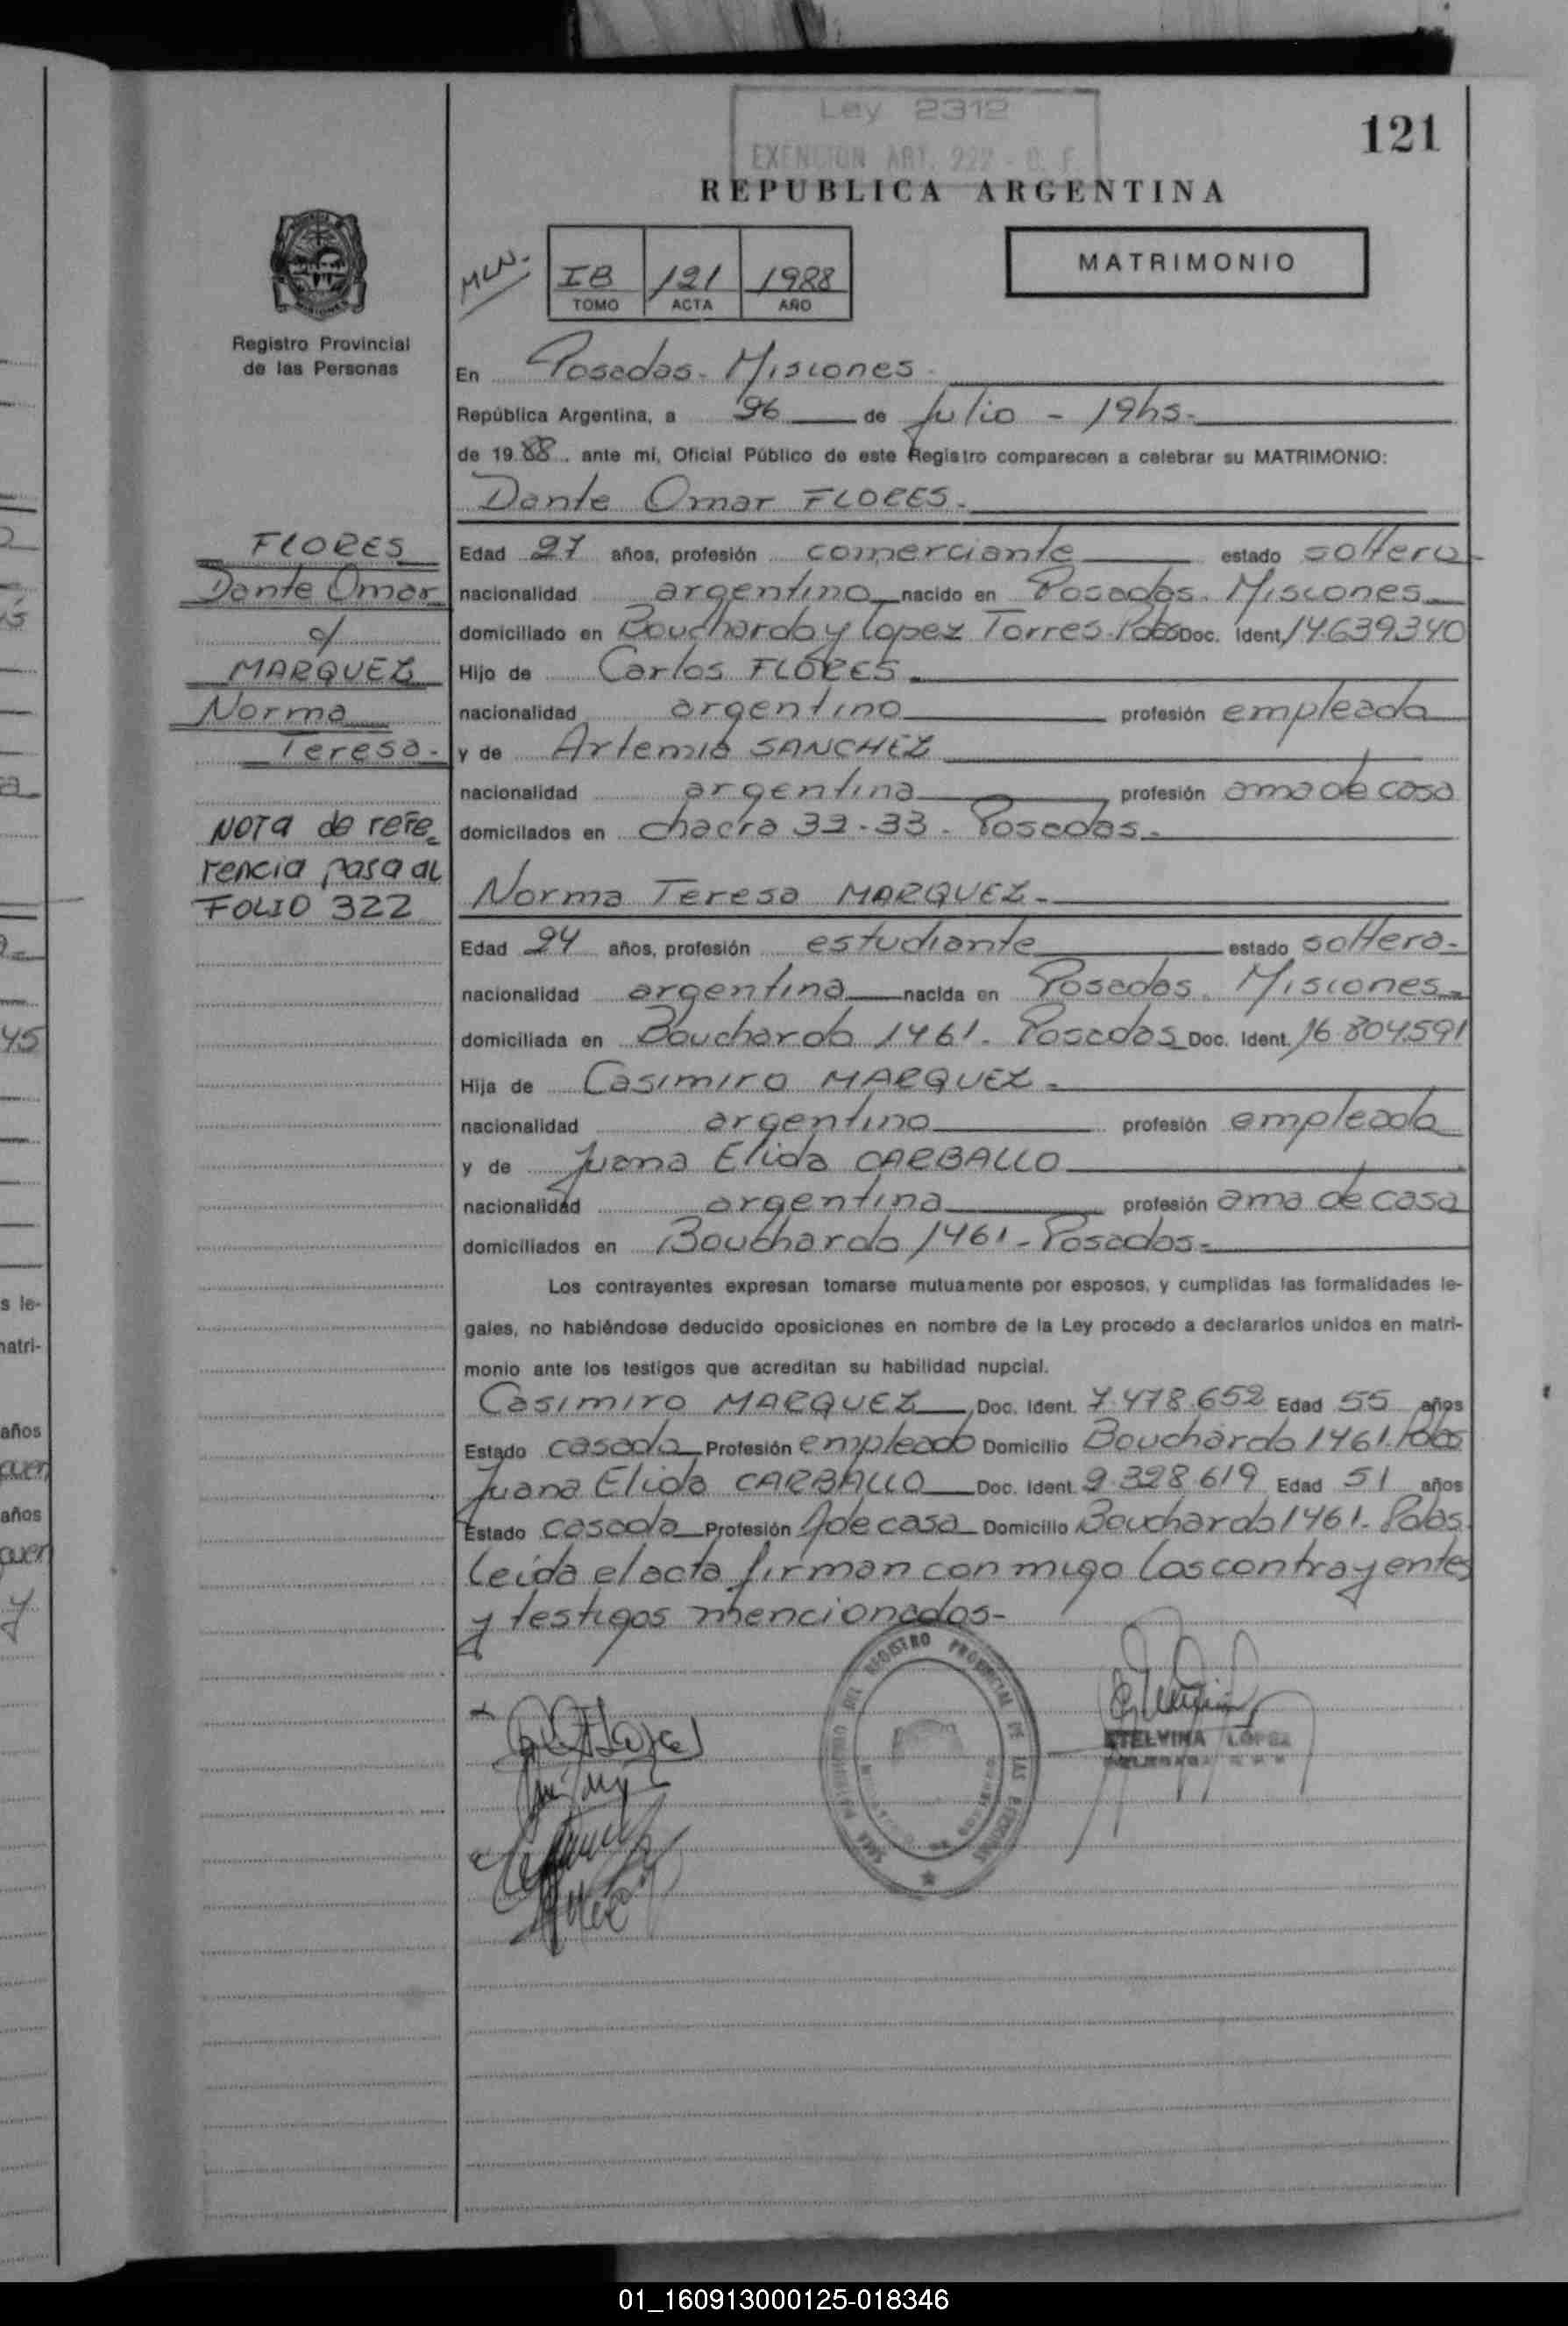 Ley 2312
EXENCION ART. 222 - C. F.
121
REPUBLICA ARGENTINA
MLN.
IB 121 1988
TOMO ACTA AÑO
MATRIMONIO
Registro Provincial
de las Personas
En Posadas - Misiones -
República Argentina, a 26 de Julio - 19hs -
de 1988 . ante mí, Oficial Público de este Registro comparecen a celebrar su MATRIMONIO:
Dante Omar FLORES -
FLORES
Dante Omar
c/
MARQUEZ
Norma
Teresa -
NOTA de refe
rencia pasa al
FOLIO 322
Edad 27 años, profesión comerciante estado soltero -
nacionalidad argentino nacido en Posadas - Misiones
domiciliado en Bouchardo y Lopez Torres - Pdas Doc. Ident. 14.639.340
Hijo de Carlos FLORES -
nacionalidad argentino profesión empleado
y de Artemia SANCHEZ
nacionalidad argentina profesión ama de casa
domicilados en chacra 32-33 - Posadas -
Norma Teresa MARQUEZ -
Edad 24 años, profesión estudiante estado soltera -
nacionalidad argentina nacida en Posadas - Misiones -
domiciliada en Bouchardo 1461 - Posadas Doc. Ident. 16.804.591
Hija de Casimiro MARQUEZ -
nacionalidad argentino profesión empleado
y de Juana Elida CARBALLO
nacionalidad argentina profesión ama de casa
domiciliados en Bouchardo 1461 - Posadas -
Los contrayentes expresan tomarse mutuamente por esposos, y cumplidas las formalidades le-
gales, no habiéndose deducido oposiciones en nombre de la Ley procedo a declararlos unidos en matri-
monio ante los testigos que acreditan su habilidad nupcial.
Casimiro MARQUEZ Doc. Ident. 7.478.652 Edad 55 años
Estado casado Profesión empleado Domicilio Bouchardo 1461 - Pdas
Juana Elida CARBALLO Doc. Ident. 9.328.619 Edad 51 años
Estado casada Profesión A de casa Domicilio Bouchardo 1461 - Pdas.
Leida el acta firman conmigo los contrayentes
y testigos mencionados -
DEL REGISTRO PROVINCIAL DE LAS PERSONAS
ETELVINA LOPEZ
01_160913000125-018346